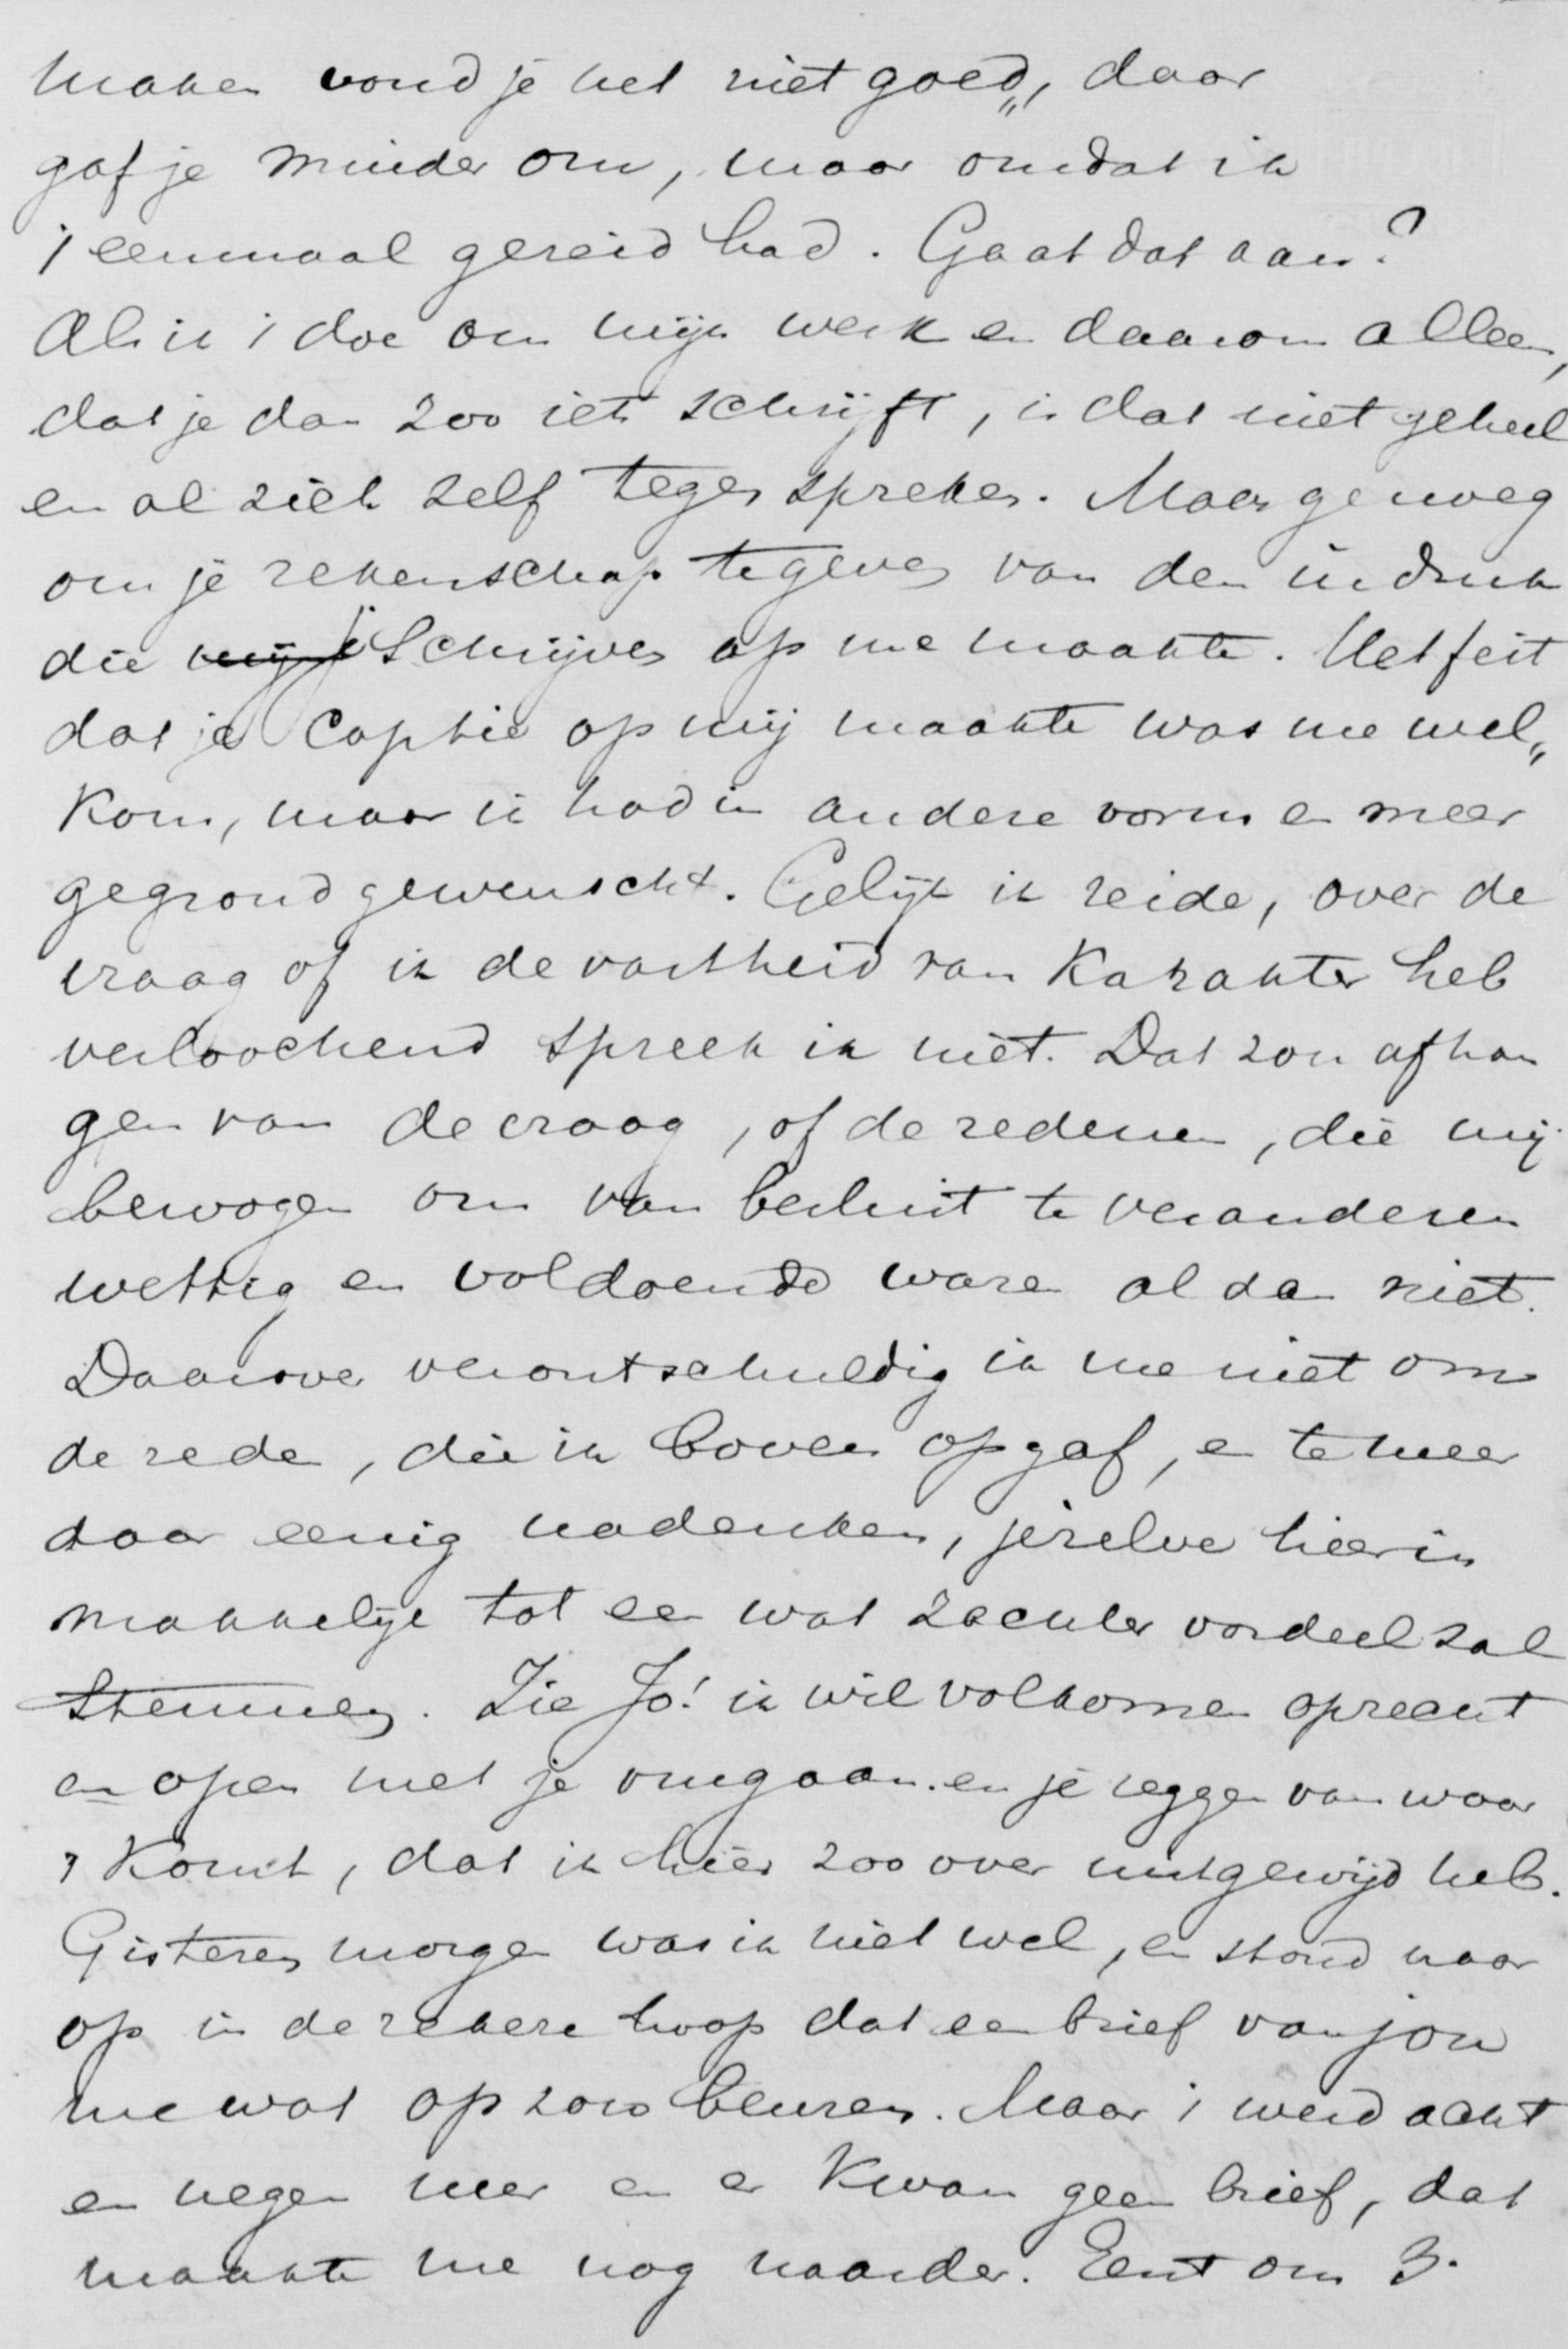 maken vond je het niet goed„, daar
gaf je minder om, maar omdat ik
't eenmaal gezeid had. Gaat dat aan?
Als ik 't doe om mijn werk en daarom alleen,
dat je dan zoo iets schrijft, is dat niet geheel
en al zich zelf tegenspreken. Maar genoeg
om je rekenschap te geven van den indruk
die je schrijven op me maakte. Het feit
dat je captie op mij maakte was me wel„
kom, maar ik had in andere vorm en meer
gegrond gewenscht. Gelijk ik zeide, over de
vraag of ik de vastheid van karakter heb
verloochend spreek ik niet. Dat zou afhan
gen van de vraag, of de redenen, die mij
bewogen om van besluit te veranderen
wettig en voldoende waren al dan niet.
Daarover verontschuldig ik me niet om
de reden, die ik boven opgaf, en te meer
daar eenig nadenken, jezelve hierin
makkelijk tot een wat zachter oordeel zal
stemmen. Zie Jo! ik wil volkomen oprecht
en open met je omgaan. en je zeggen van waar
't komt, dat ik hier zoo over uitgewijd heb.
Gisteren morgen was ik niet wel, en stond naar
op in de zekere hoop dat een brief van jou
me wat op zou beuren. Maar 't werd acht
en negen uur en er kwam geen brief, dat
maakte me nog naarder. Eerst om 3.